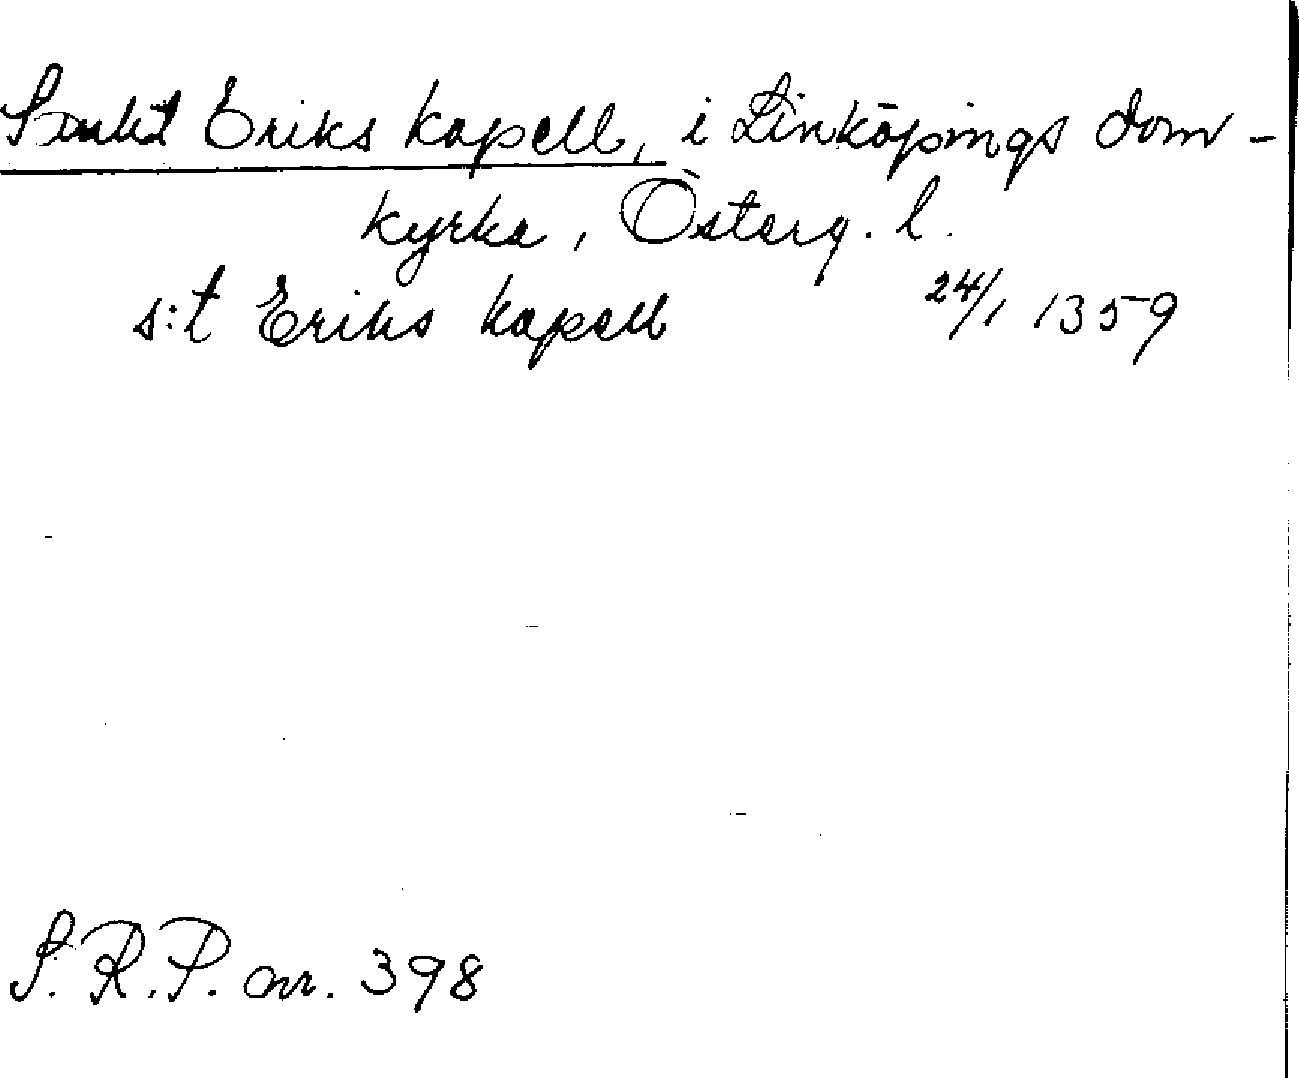 Sankt Eriks kapell, i Linköpings dom-
kyrka, Österg. l.
s:t Eriks kapell 24/1 1359
S.R.P. nr. 398